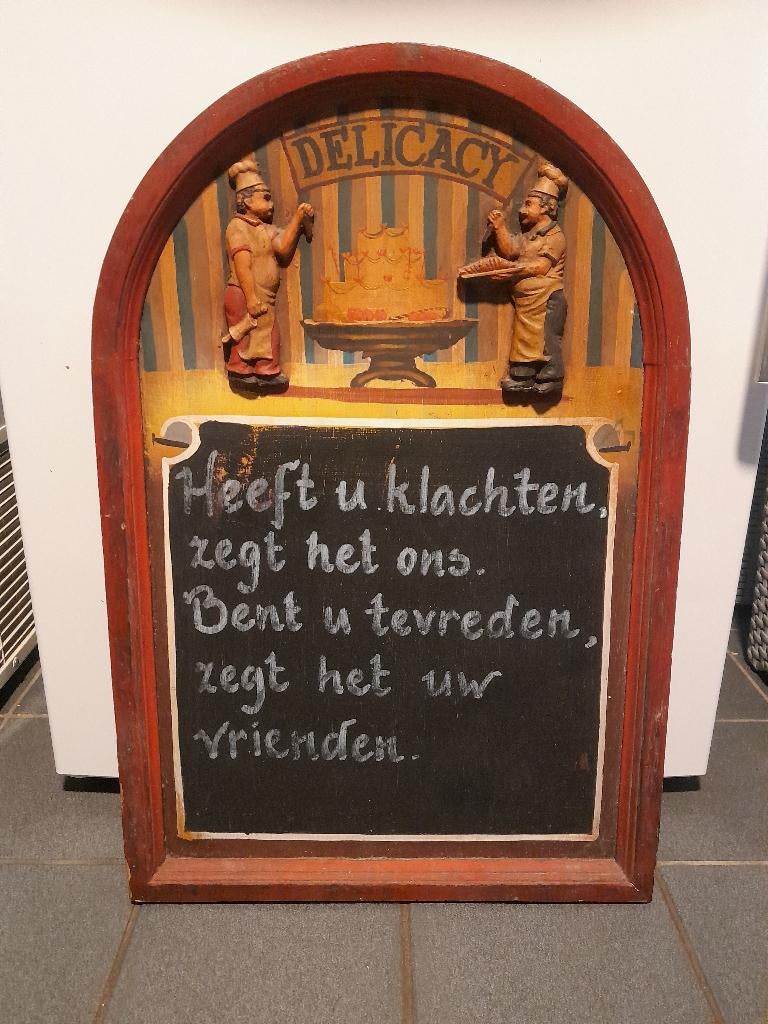 DELICACY
Heeft u klachten,
zegt het ons.
Bent u tevreden,
zegt het uw
vrienden.